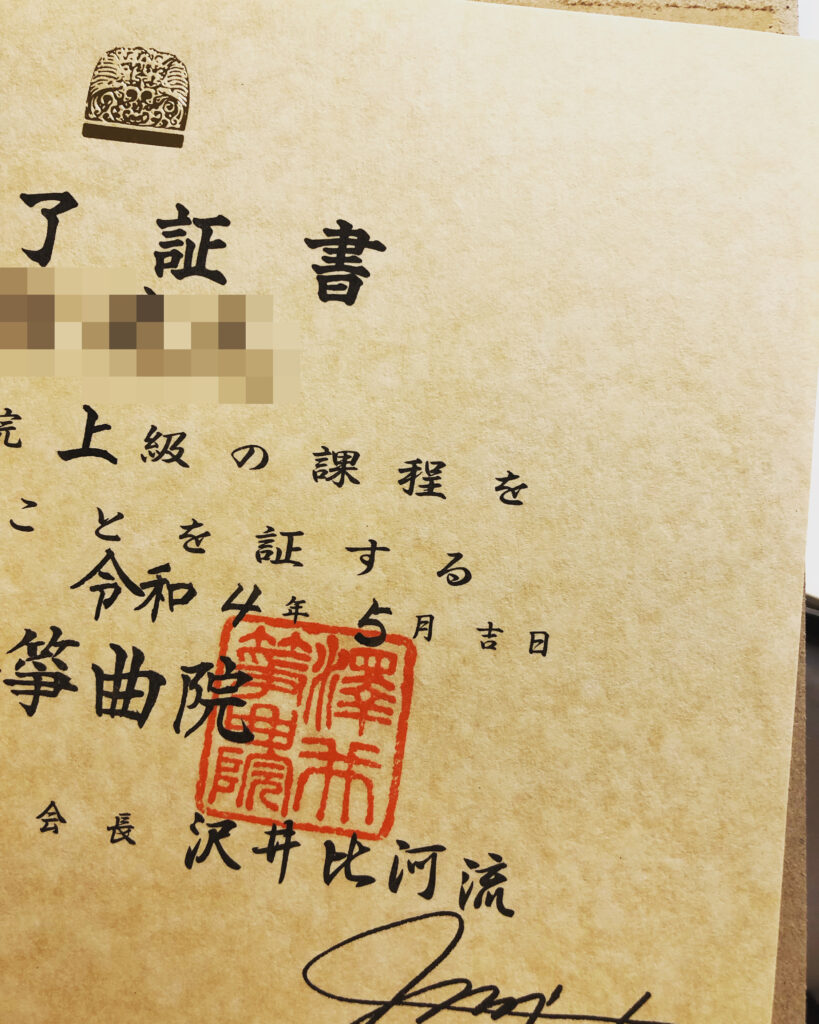 了証書
院上級の課程を
ことを証する
令和4年5月吉日
箏曲院
会長 沢井比河流
澤井箏曲院